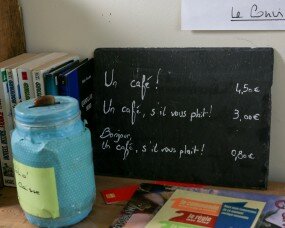 Le Convi
Un café !
4,50€
Un café, s'il vous plait !
3,00€
Bonjour,
un café, s'il vous plait !
0,80€
la règle